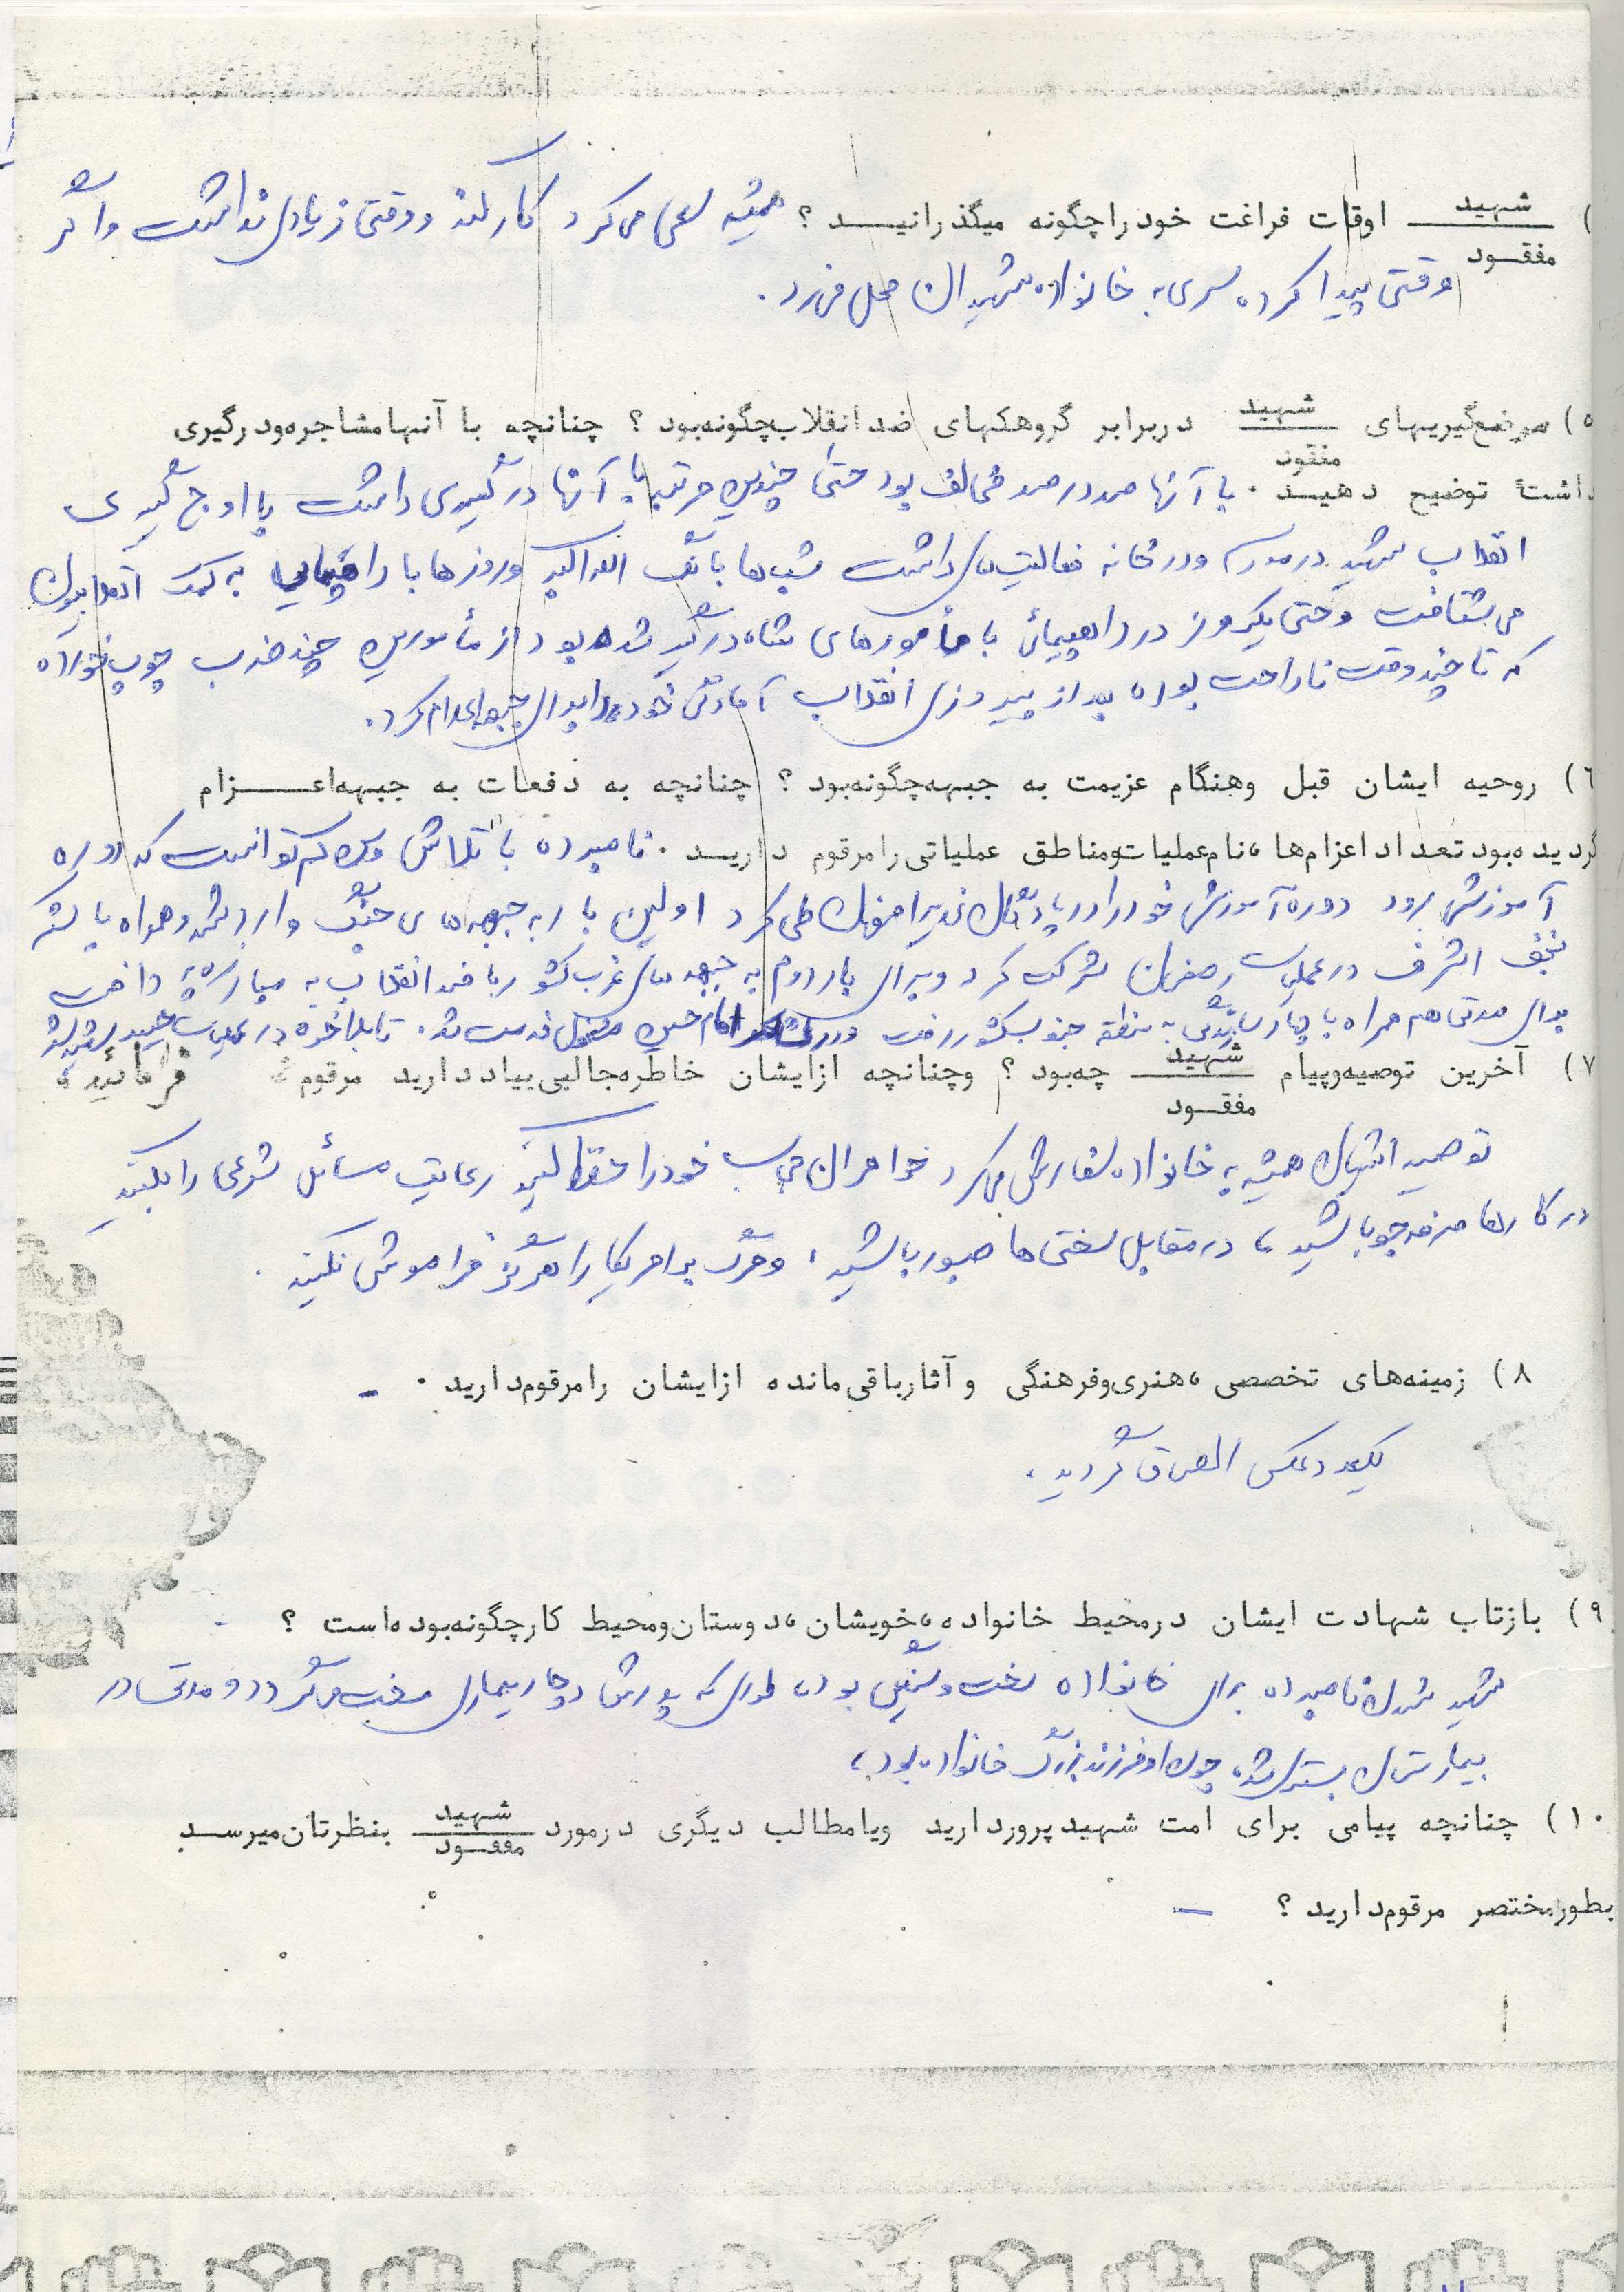 ) شهید / مفقود اوقات فراغت خود را چگونه میگذرانید ؟ همیشه سعی می کرد کار کند و وقتی زیادی نداشت و اگر
وقتی پیدا کرده سری به خانواده شهیدان محل میزد .
۵) موضع‌گیریهای شهید / مفقود در برابر گروهکهای ضد انقلاب چگونه بود ؟ چنانچه با آنها مشاجره و درگیری
داشته توضیح دهید . با آنها صد در صد مخالف بود حتی چندین مرتبه با آنها درگیری داشت با اوج گیری
انقلاب شهید در مدرسه و در خانه فعالیت های داشت شب ها بانگ الله اکبر و روزها با راهپیمایی به کمک انقلابیون
می شتافت و حتی یکروز در راهپیمائی با مامورهای شاه درگیر شده بود از مأمورین چند ضرب چوب خورده
که تا چند وقت ناراحت بوده بعد از پیروزی انقلاب آمادگی خود را برای جبهه اعلام کرد.
۶) روحیه ایشان قبل وهنگام عزیمت به جبهه چگونه بود ؟ چنانچه به دفعات به جبهه اعزام
گردیده بود تعداد اعزام ها ، نام عملیات و مناطق عملیاتی را مرقوم دارید . نامبرده با تلاش توانست که دوره
آموزش برود دوره آموزش خود را در پادگان غدیر اصفهان طی کرد اولین بار به جبهه های جنگ وارد شد و همراه با لشکر
نجف اشرف در عملیات رمضان شرکت کرد و برای بار دوم به جبهه های غرب کشور با ضد انقلاب به مبارزه پرداخت
برای مدتی هم همراه با به منطقه جنوب کشور رفت و در لشکر امام حسین مشغول خدمت شد. تا بالاخره در عملیات شهید شد
۷) آخرین توصیه و پیام شهید / مفقود چه بود ؟ وچنانچه از ایشان خاطره جالبی بیاد دارید مرقوم فرمائید ،
توصیه ایشان همیشه به خانواده سفارش میکرد خواهران حجاب خود را حفظ کنید رعایت مسائل شرعی را بکنید
در کارها صرفه جو باشید ، در مقابل سختی ها صبور باشید ، و مرگ بر امریکا را هرگز فراموش نکنید .
۸) زمینه‌های تخصصی ، هنری و فرهنگی و آثار باقی مانده از ایشان را مرقوم دارید . -
یکعدد عکس الصاق گردید ،
۹) بازتاب شهادت ایشان در محیط خانواده ، خویشان ، دوستان و محیط کار چگونه بوده است ؟
شهید شدن نامبرده برای خانواده سخت و سنگین بوده طوری که پدرش دچار بیماری سخت میگردد و مدتی در
بیمارستان بستری شد، چون او فرزند بزرگ خانواده بود ،
۱۰) چنانچه پیامی برای امت شهید پرور دارید ویا مطالب دیگری در مورد شهید / مفقود بنظرتان میرسد
بطور مختصر مرقوم دارید ؟ -